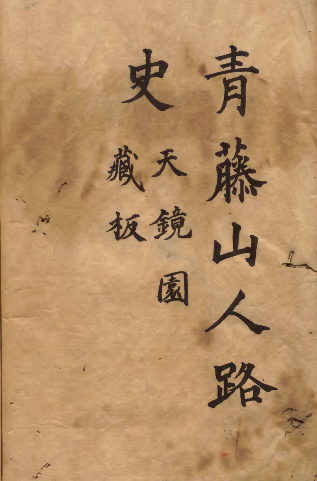 青藤山人路
史
天鏡園
藏板